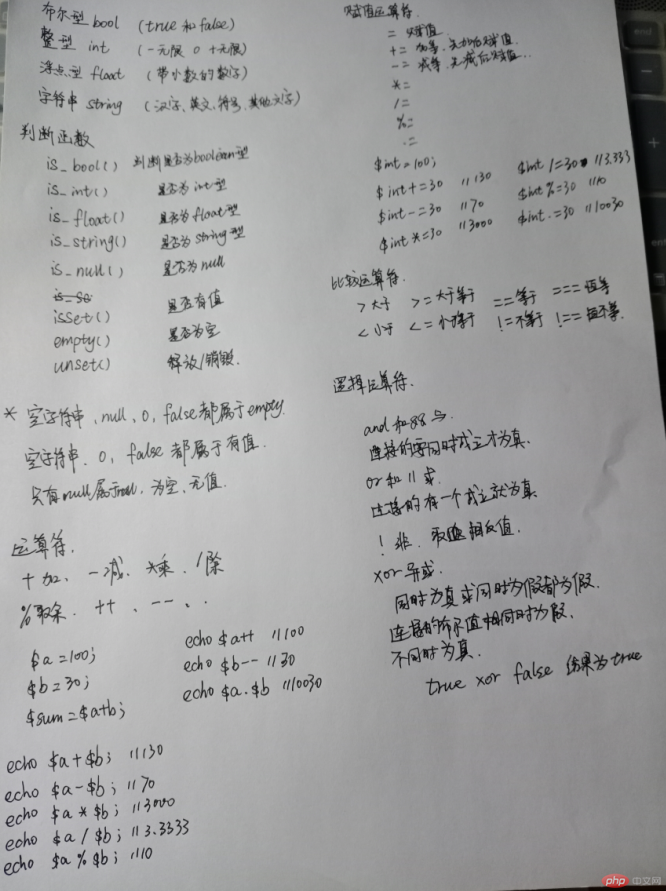 布尔型 bool (true 和 false)
整型 int (-无限 0 +无限)
浮点型 float (带小数的数字)
字符串 string (汉字、英文、符号、其他文字)
判断函数
is_bool() 判断是否为boolean型
is_int() 是否为int型
is_float() 是否为float型
is_string() 是否为string型
is_null() 是否为null
is_se
isset() 是否有值
empty() 是否为空
unset() 释放/销毁
* 空字符串、null、0、false都属于empty.
空字符串、0、false 都属于有值.
只有null属于null, 为空、无值.
运算符.
+ 加、 - 减、 *乘、 / 除
%取余、 ++ 、 -- 、 .
$a=100;
$b=30;
$sum=$a+b;
echo $a++ //100
echo $b-- //30
echo $a.$b //10030
echo $a+$b; //130
echo $a-$b; //70
echo $a*$b; //3000
echo $a/$b; //3.3333
echo $a%$b; //10
赋值运算符.
= 赋值
+= 加等、先加后赋值
-= 减等、先减后赋值...
*=
/=
%=
.=
$int=100;
$int+=30 //130
$int-=30 //70
$int*=30 //3000
$int/=30 //3.333
$int%=30 //10
$int.=30 //10030
比较运算符.
>大于 >=大于等于 ==等于 ===恒等
<小于 <=小于等于 !=不等于 !==恒不等.
逻辑运算符.
and 和 && 与
连接的要同时成立才为真.
or 和 || 或
连接的有一个成立就为真
! 非. 取相反值.
xor 异或.
同时为真或同时为假都为假.
连接的布尔值相同时为假.
不同时为真.
true xor false 结果为true
php 中文网